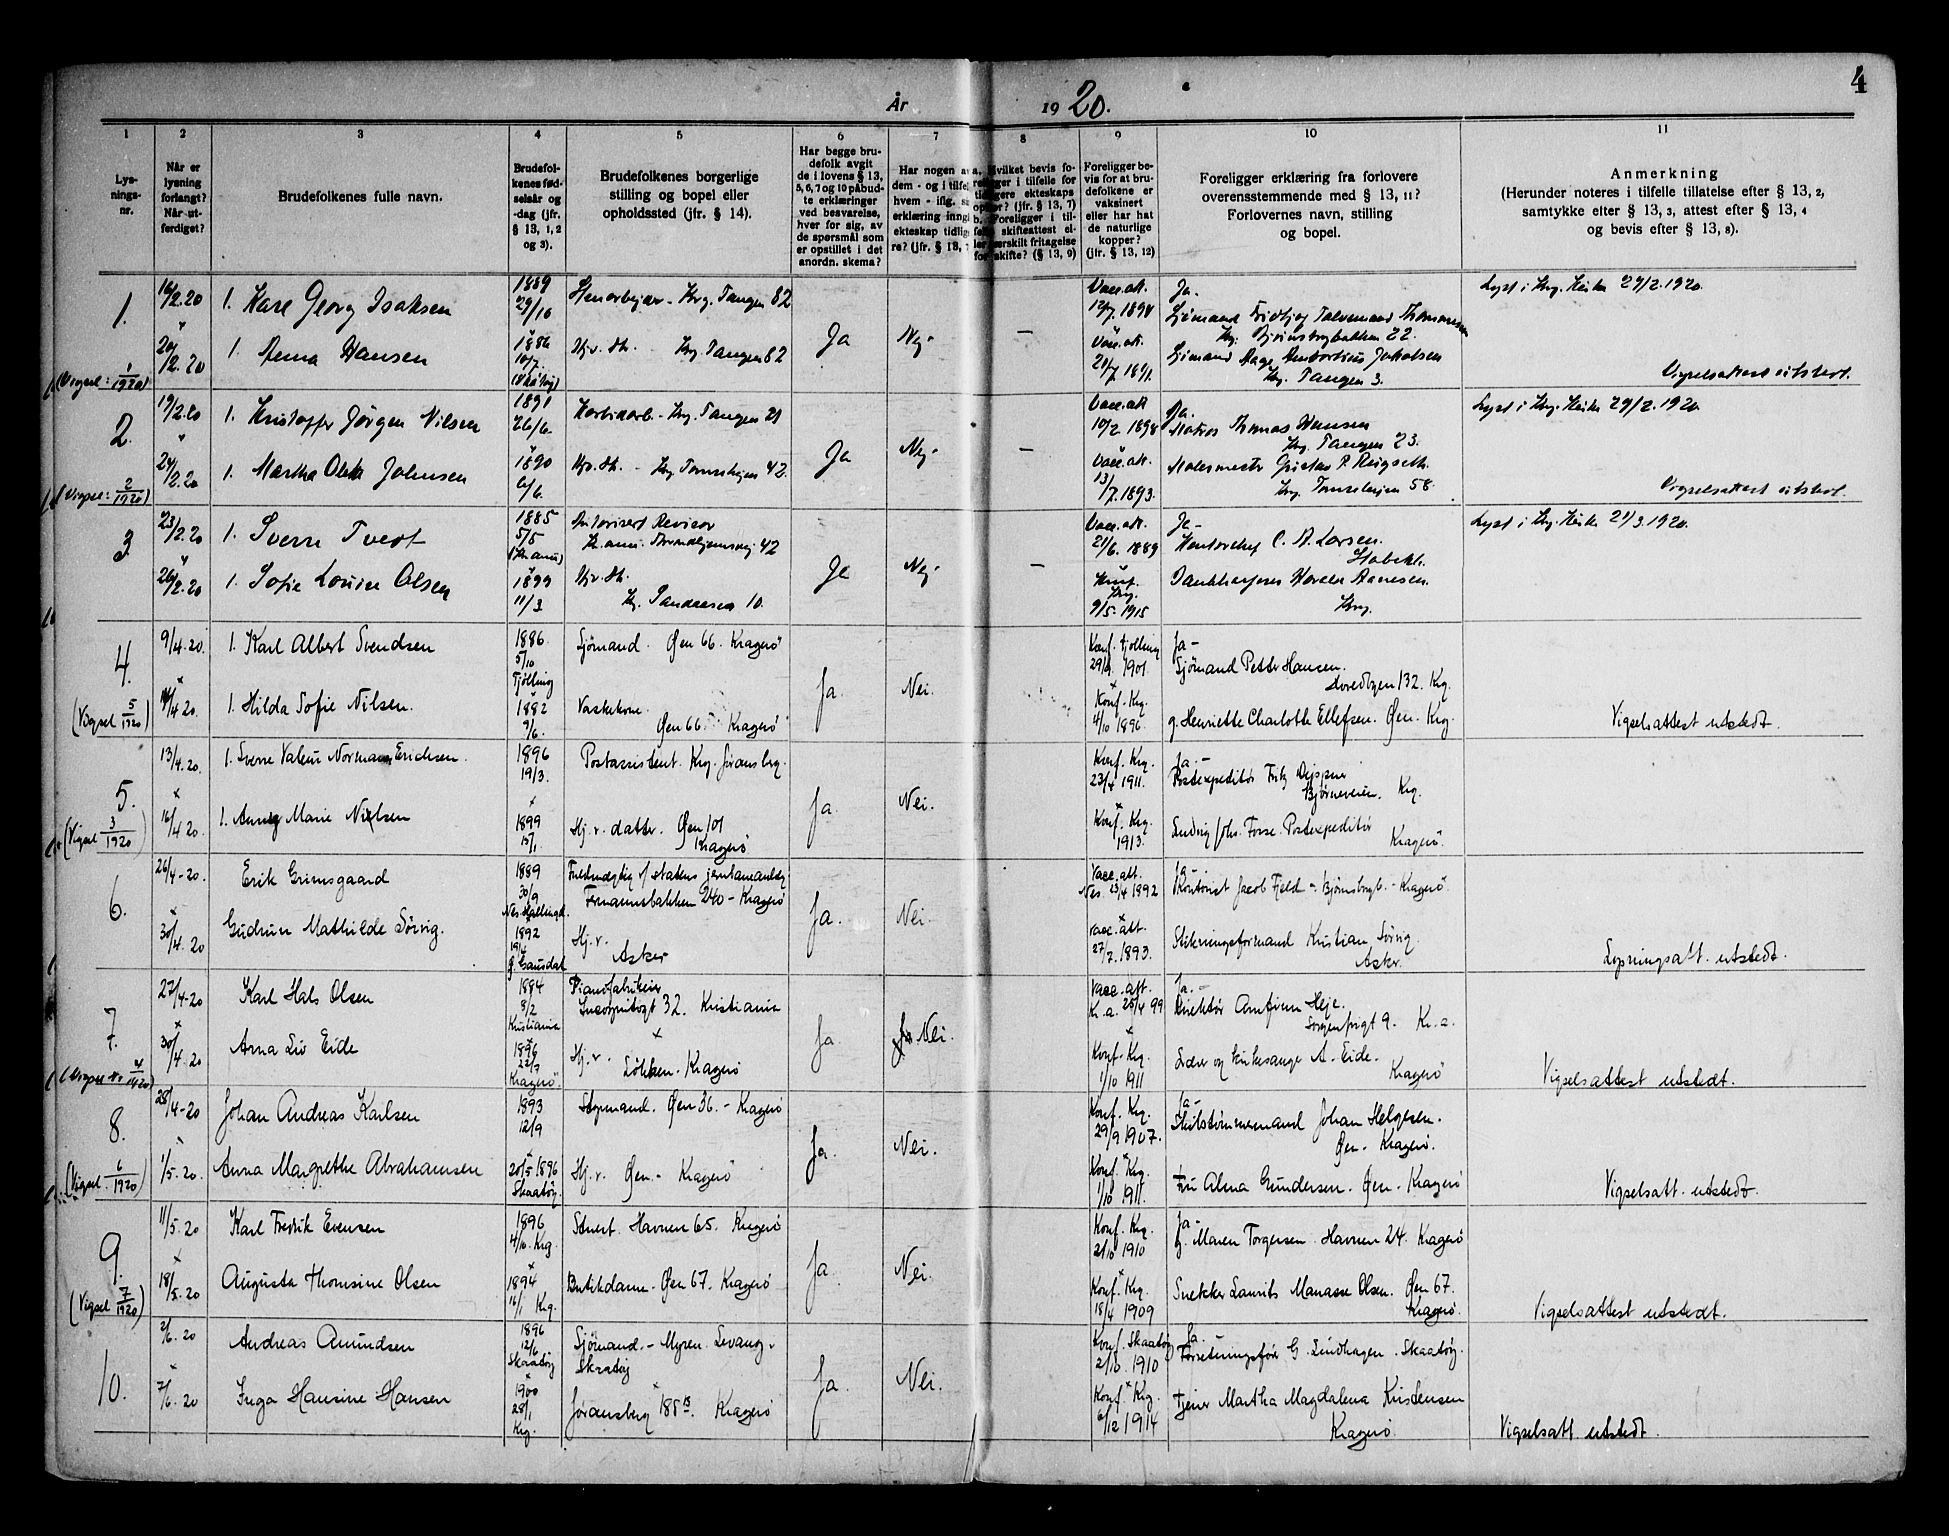 4
År 1920.
1 2 3 4 5 6 7 8 9 10 11
Lysningsnr.
Når er lysning forlangt? Når utferdiget?
Brudefolkenes fulle navn.
Brudefolkenes fødselsår og -dag (jfr. § 13, 1, 2 og 3).
Brudefolkenes borgerlige stilling og bopel eller opholdssted (jfr. § 14).
Har begge brudefolk avgit de i lovens § 13, 5, 6, 7 og 10 påbudte erklæringer ved besvarelse, hver for sig, av de spørsmål som er opstillet i det anordn. skema?
Har nogen av dem - og i tilfel
hvem - iflg.
erklæring inng
ekteskap tidlig
re? (jfr. § 13,
Hvilket bevis fo-
ligger i tilfelle for
ekteskaps
(jfr. § 13, 7)
b. Foreligger i til-
skifteattest el-
særskilt fritagelse
for skifte? (§ 13, 9)
Foreligger bevis for at brudefolkene er vaksinert eller har hat de naturlige kopper? (jfr. § 13, 12)
Foreligger erklæring fra forlovere overensstemmende med § 13, 11? Forlovernes navn, stilling og bopel.
Anmerkning
(Herunder noteres i tilfelle tillatelse efter § 13, 2, samtykke efter § 13, 3, attest efter § 13, 4 og bevis efter § 13, 8).
1. 16/2.20 1. Georg Isaksen 1889 29/10 Krg. Tangen 82 Vacc.att. Ja. Lyst i Krg. Kirke 29/2.1920.
Ja Nei - —
12.20 1. Hansen 1886 Hj. dt. Krg. Tangen 82 Vacc.att. Sjømand Aage Jakobsen
(Vigsel: 1/1920) Krg. Tangen 3. Vigselsattest utstedt.
2. 19/2.20 1. Kristoffer Jørgen Nilsen 1891 26/6. Krg. Tangen 21 Vacc.att 10/2 1898 Ja. Matros Thomas Hansen Lyst i Krg. Kirke 29/2.1920.
Krg. Tangen 23.
Ja Nei - —
24/2.20 1. Martha Johnsen 1890 6/6. Hj. dt. - Krg. 42. Vacc.att. 13/7.1893. Gustav P.
(Vigsel: 2/1920) Krg. 58. Vigselsattest utstedt.
3. 23/2.20 1. Sverre Tvedt 1885 5/5 Autorisert Revisor Vacc.att. 21/6. 1889 Ja - Lyst i Krg. Kirke 21/3.1920.
Kr.ania. Trondhjemsvej 42 Kontorchef C. A. Larsen.
Stabekk.
Ja Nei - —
26/2.20 1. Sofie Louise Olsen 1899 11/3 Hj. dt. Konf. Krg. 9/5.1915
Kr. 10. Krg.
4. 9/4.20. 1. Karl Albert Svendsen 1886. 5/10 Tjølling Sjömand. Øen 66. Kragerö Konf. Tjølling 1901 Ja - Sjömand Petter Hansen.
132. Krg.
Ja. Nei.
(Vigsel 5/1920) 4.20. 1. Hilda Sofie Nilsen. 1882 9/6. Vaskekone. Konf. Krg. 4/10 1896. g. Henriette Charlotte Ellefsen. Øen. Krg Vigselsattest utstedt.
Øen 66. Kragerö
5. 13/4.20. 1. Sverre Norman Erichsen. 1896 19/3. Postassistent. Krg. Konf. Krg. 23/4 1911. Ja. - Postexpeditör Fritz
Bjørneveien. Krg.
Ja. Nei.
(Vigsel 3/1920) 16/4 20. 1. Marie Nielsen 1899 15/1 Hj. v. datter. Øen 101 Kragerö Konf. Krg. 1913. Ludvig Joh. Fosse. Postexpeditör Kragerö.
6. 26/4-20. Erik Grimsgaard 1889 30/9 Nes Hallingd. Fuldmægtig v/ statens
240 - Kragerö Vacc. att. Nes. 23/4 1892 Ja - Kontorist Jacob Fjeld - Bjørnsbrgb. - Kragerö.
Ja. Nei.
30/4. 20 Gudrun Mathilde Sörvig. 1892 19/4 Gausdal Hj. v. Asker vacc. att. 27/7. 1893. Stikningsformand Kristian Sörvig Asker. Lysningsatt. utstedt.
7. 27/4-20 Karl Hals Olsen 1884 8/2 Kristiania Pianofabrikeier
32. Kristiania Vacc. att. Kr.a. 25/4 99 Ja. - Direktör Arnfinn Heje. Sorgenfrigt 9. Kr. a.
Ja. Nei.
(Vigsel Nr 4/1920) 30/4. 20 Anna Liv Eide 1896 22/7 Kragerö. Hj. v. Lökken. Kragerö Konf. Krg. 1/10 1911 Lærer og kirkesanger A. Eide. Kragerö Vigselsattest utstedt.
8. 28/4-20 Johan Andreas Karlsen 1893 12/9 Styrmand. Øen 36. - Kragerö Konf. Krg. 29/9 1907. Ja - Skibstömmermand Johan Helgesen.
Øen - Kragerö.
Ja. Nei.
(Vigsel 6/1920) 1/5.20. Anna Margrethe Abrahamsen 20/5 1896 Skaatöy. Hj. v. Øen - Kragerö Konf. Krg. 1/10 1911. Fru Alma Gundersen. Øen - Kragerö Vigselsatt. utstedt.
9. 11/5.20 Karl Fredrik Evensen 1896 4/10. Krg. Stuert. Havnen 65. Kragerö Konf. Krg. 2/10 1910 Ja - g. Maren Torgersen Havnen 24. Kragerö
Ja. Nei.
(Vigsel 7/1920) 18/5.20 Augusta Thomsine Olsen 1894 16/1 Krg. Butikdame. Øen 67. Kragerö Konf. Krg. 18/4 1909 Snekker Laurits Manasse Olsen. Øen 67. Kragerö. Vigselsattest utstedt.
10. 2/6.20 Andreas Amundsen 1896 12/6 Skaatöy Sjömand. - Myren Levang - Skaatöy Konf. Skaatöy 2/10 1910 Ja. Forretningsförer G. Lindhagen. Skaatöy.
Ja. Nei.
7/6.20 Inga Hansine Hansen 1900 28/1 Krg. Kragerö Konf. Krg. 6/12 1914 Tjener Martha Magdalena Kristensen Kragerö Vigselsatt. utstedt.